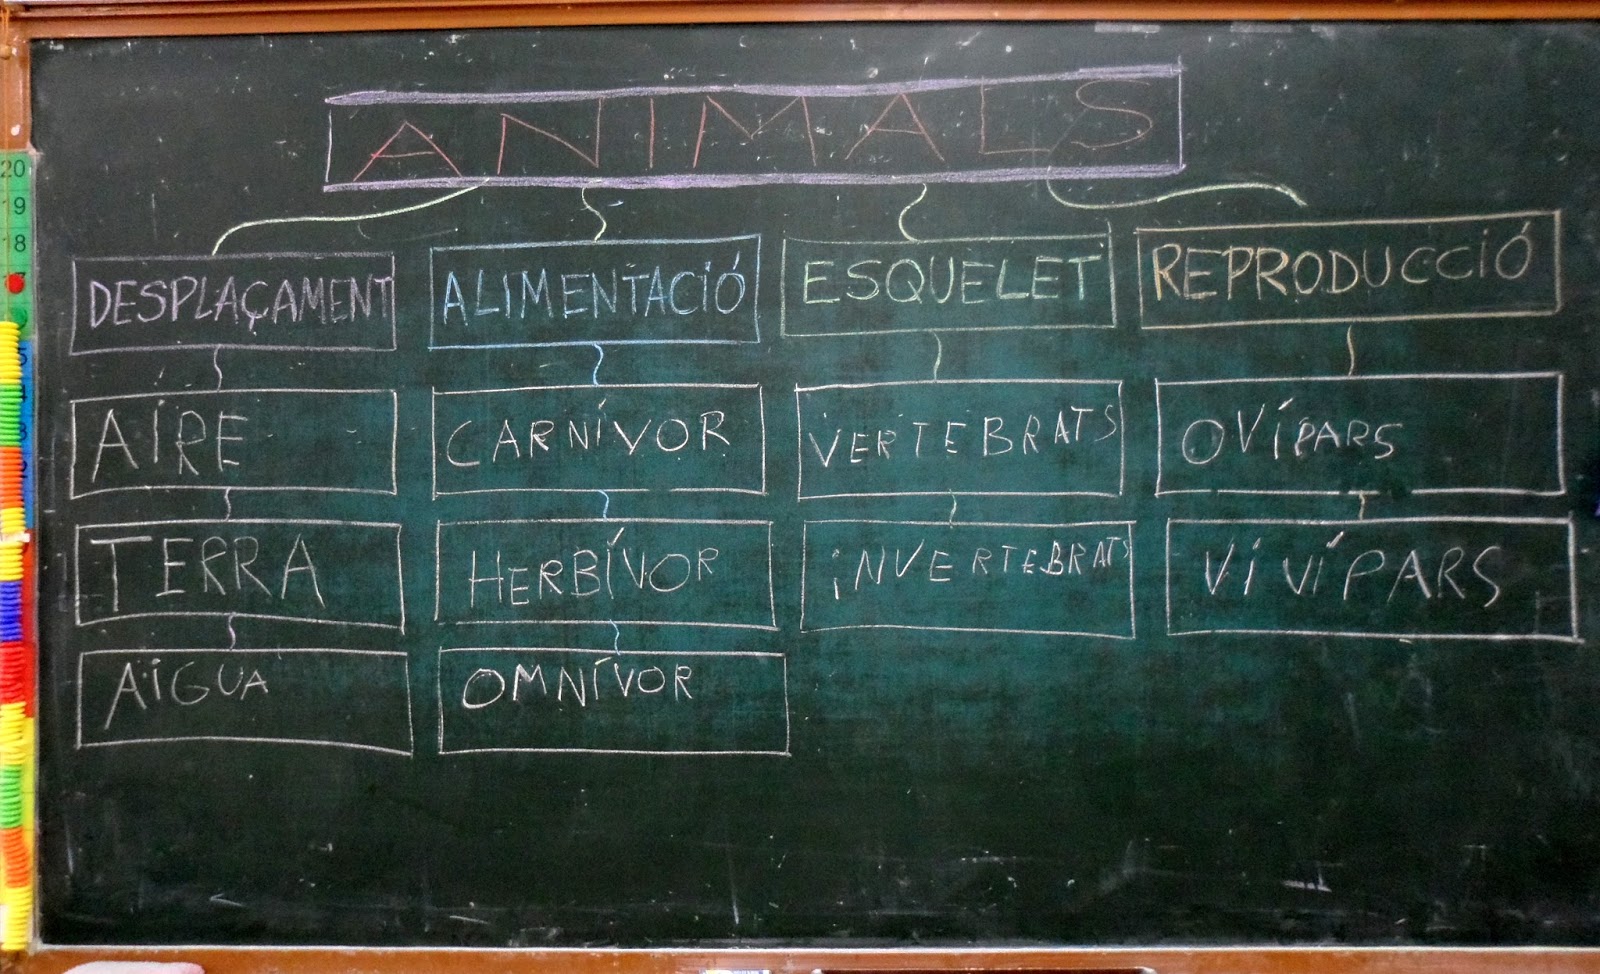 ANIMALS
DESPLAÇAMENT ALIMENTACIÓ ESQUELET REPRODUCCIÓ
AIRE CARNÍVOR VERTEBRATS OVÍPARS
TERRA HERBÍVOR INVERTEBRATS VIVÍPARS
AIGUA OMNÍVOR
20
19
18